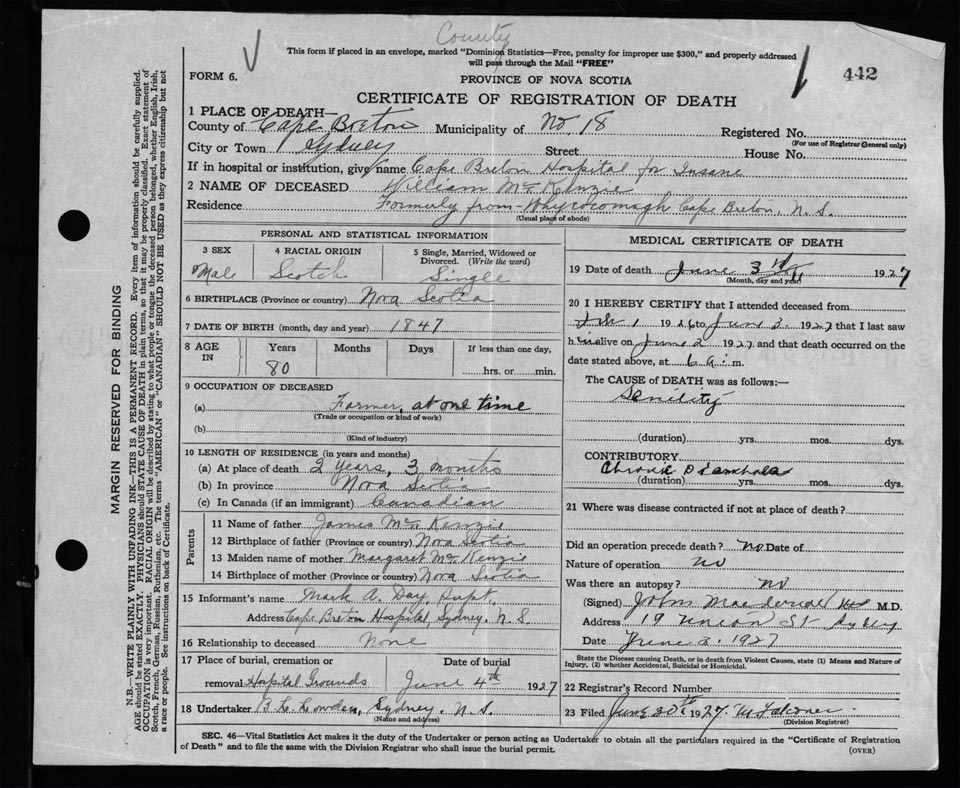 County
This form if placed in an envelope, marked "Dominion Statistics—Free, penalty for improper use $300," and properly addressed
will pass through the Mail "FREE"
FORM 6.
PROVINCE OF NOVA SCOTIA
442
CERTIFICATE OF REGISTRATION OF DEATH
1 PLACE OF DEATH—
County of Cape Breton Municipality of No. 18 Registered No.
(For use of Registrar General only)
City or Town Sydney Street House No.
If in hospital or institution, give name Cape Breton Hospital for Insane
2 NAME OF DECEASED William McKenzie
Residence Formerly from Whycocomagh Cape Breton, N.S.
(Usual place of abode)
PERSONAL AND STATISTICAL INFORMATION
3 SEX 4 RACIAL ORIGIN 5 Single, Married, Widowed or
Divorced. (Write the word)
Male Scotch Single
6 BIRTHPLACE (Province or country) Nova Scotia
7 DATE OF BIRTH (month, day and year) 1847
8 AGE IN Years Months Days If less than one day,
80 hrs. or min.
9 OCCUPATION OF DECEASED
(a) Farmer, at one time
(Trade or occupation or kind of work)
(b)
(Kind of industry)
10 LENGTH OF RESIDENCE (in years and months)
(a) At place of death 2 years, 3 months
(b) In province Nova Scotia
(c) In Canada (if an immigrant) Canadian
Parents
11 Name of father James McKenzie
12 Birthplace of father (Province or country) Nova Scotia
13 Maiden name of mother Margaret McKenzie
14 Birthplace of mother (Province or country) Nova Scotia
15 Informant's name Mark A. Day Supt.
Address Cape Breton Hospital, Sydney, N.S.
16 Relationship to deceased None
17 Place of burial, cremation or Date of burial
removal Hospital Grounds June 4th 1927
18 Undertaker Sydney, N.S.
(Name and address)
MEDICAL CERTIFICATE OF DEATH
19 Date of death June 3 1927
(Month, day and year)
20 I HEREBY CERTIFY that I attended deceased from
Feb 1 1926 to June 3. 1927 that I last saw
him alive on June 2 1927 and that death occurred on the
date stated above, at 6 a.m.
The CAUSE OF DEATH was as follows:—
Senility
(duration) yrs. mos. dys.
CONTRIBUTORY
Chronic
(duration) yrs. mos. dys.
21 Where was disease contracted if not at place of death?
Did an operation precede death? no Date of
Nature of operation no
Was there an autopsy? no
(Signed) John M.D.
Address 19 Union St Sydney
Date June 3, 1927
State the Disease causing Death, or in death from Violent Causes, state (1) Means and Nature of
Injury, (2) whether Accidental, Suicidal or Homicidal.
22 Registrar's Record Number
23 Filed June 30th 1927. M Falconer
(Division Registrar)
SEC. 46—Vital Statistics Act makes it the duty of the Undertaker or person acting as Undertaker to obtain all the particulars required in the "Certificate of Registration
of Death" and to file the same with the Division Registrar who shall issue the burial permit.
(OVER)
MARGIN RESERVED FOR BINDING
N.B.—WRITE PLAINLY WITH UNFADING INK—THIS IS A PERMANENT RECORD. Every item of information should be carefully supplied.
AGE should be stated EXACTLY. PHYSICIANS should STATE CAUSE OF DEATH in plain terms, so that it may be properly classified. Exact statement of
OCCUPATION is very important. RACIAL ORIGIN will be described by stating to what people or tongue the deceased person belonged, whether English, Irish,
Scotch, French, German, Russian, Ruthenian, etc. The terms "AMERICAN" or "CANADIAN" SHOULD NOT BE USED as they express citizenship but not
a race or people. See instructions on back of Certificate.